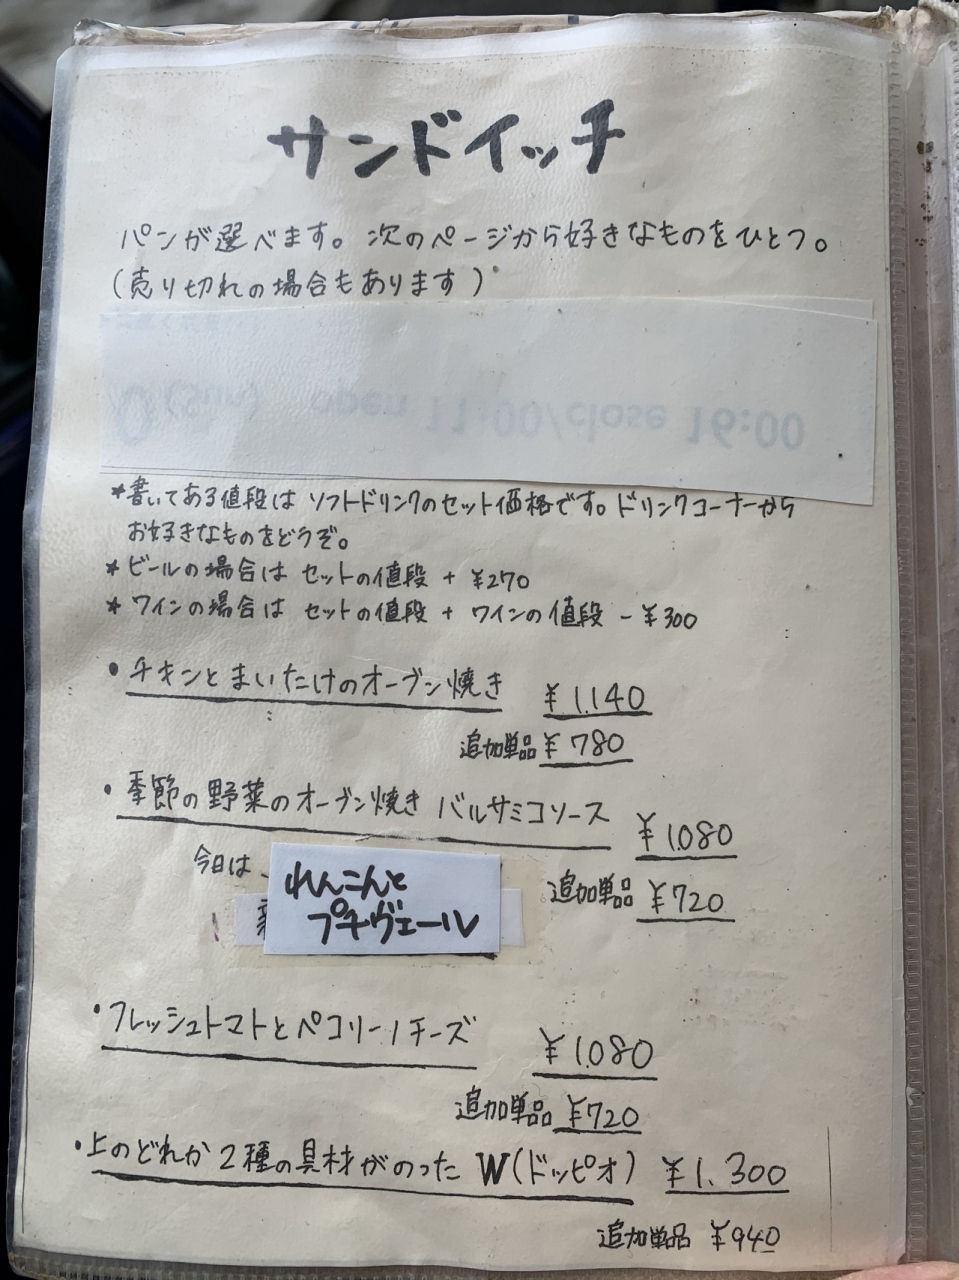 サンドイッチ
パンが選べます。次のページから好きなものをひとつ。
(売り切れの場合もあります)
(Sun) open 11:00/close 16:00
*書いてある値段は ソフトドリンクのセット価格です。ドリンクコーナーから
お好きなものをどうぞ。
*ビールの場合は セットの値段 + ¥270
*ワインの場合は セットの値段 + ワインの値段 - ¥300
・チキンとまいたけのオーブン焼き ¥1.140
追加単品 ¥780
・季節の野菜のオーブン焼き バルサミコソース ¥1.080
今日は
れんこんと
プチヴェール
追加単品 ¥720
・フレッシュトマトとペコリーノチーズ ¥1.080
追加単品 ¥720
・上のどれか2種の具材がのった W(ドッピオ) ¥1.300
追加単品 ¥940